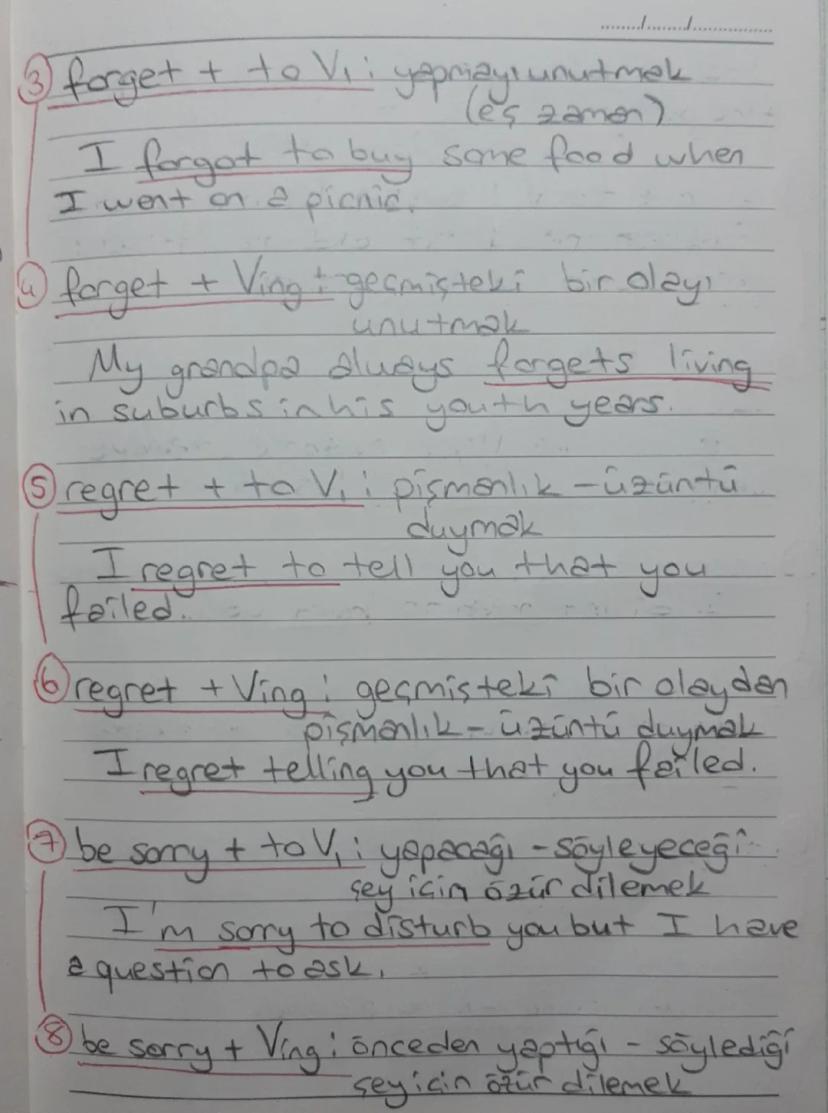 ....../....../...............
③ forget + to V₁ : yapmayı unutmak
(eş zaman)
I forgot to buy some food when
I went on a picnic.
④ forget + Ving : geçmişteki bir olayı
unutmak
My grandpa always forgets living
in suburbs in his youth years.
⑤ regret + to V₁ : pişmanlık - üzüntü
duymak
I regret to tell you that you
failed.
⑥ regret + Ving : geçmişteki bir olaydan
pişmanlık - üzüntü duymak
I regret telling you that you failed.
⑦ be sorry + to V₁ : yapacağı - söyleyeceği
şey için özür dilemek
I'm sorry to disturb you but I have
a question to ask.
⑧ be sorry + Ving : önceden yaptığı - söylediği
şey için özür dilemek